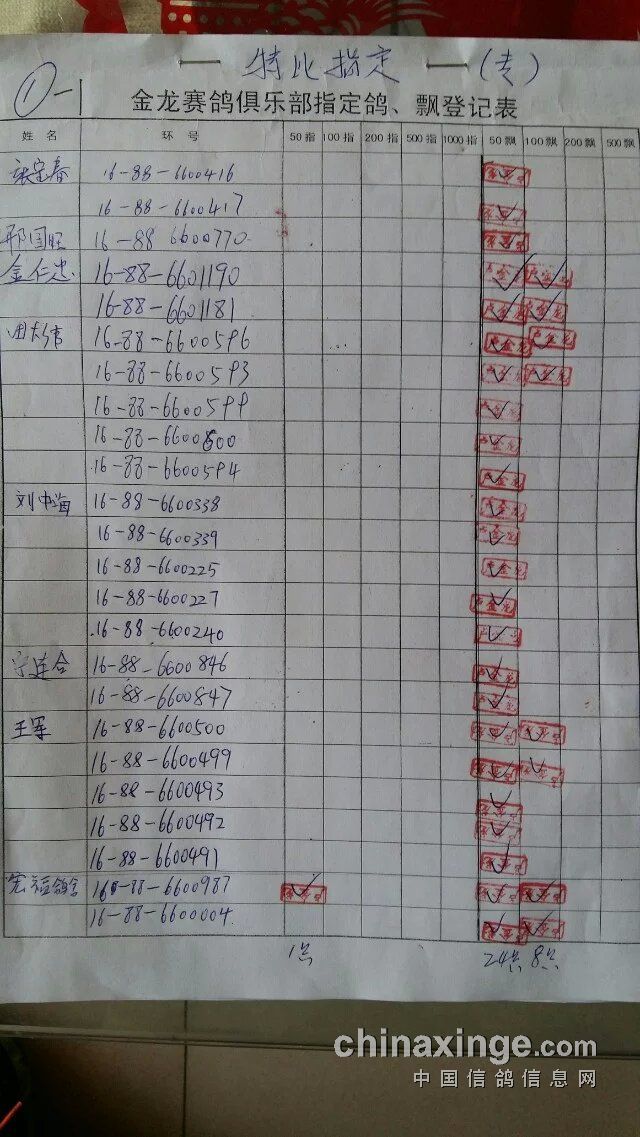 特比指定 (专)
①-1
金龙赛鸽俱乐部指定鸽、飘登记表
姓名 环号 50指 100指 200指 500指 1000指 50飘 100飘 200飘 500飘
16-88-6600416
16-88-6600417
邢国旺 16-88 6600770
金仁忠 16-88-6601190
16-88-6601181
田大伟 16-88-6600596
16-88-6600593
16-88-6600599
16-88-6600600
16-88-6600594
刘中海 16-88-6600338
16-88-6600339
16-88-6600225
16-88-6600227
16-88-6600240
宁连合 16-88-6600846
16-88-6600847
王军 16-88-6600500
16-88-6600499
16-88-6600493
16-88-6600492
16-88-6600491
宏福鸽舍 16-88-6600987
16-88-6600004
1只 24只 8只
chinaxinge.com
中国信鸽信息网